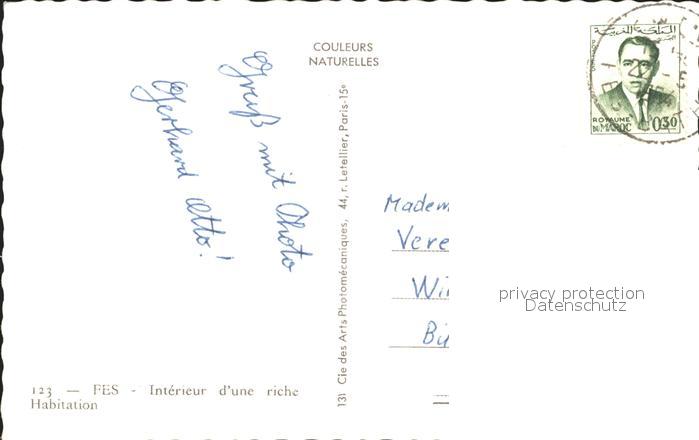 COULEURS
NATURELLES
Gruß mit Photo
Gerhard Otto!
131 Cie des Arts Photomécaniques, 44, r. Letellier, Paris-15e
المملكة المغربية
ROYAUME
DU MAROC 0,30
Madem
Vere
Wi
Bi
privacy protection
Datenschutz
123 — FES - Intérieur d'une riche
Habitation